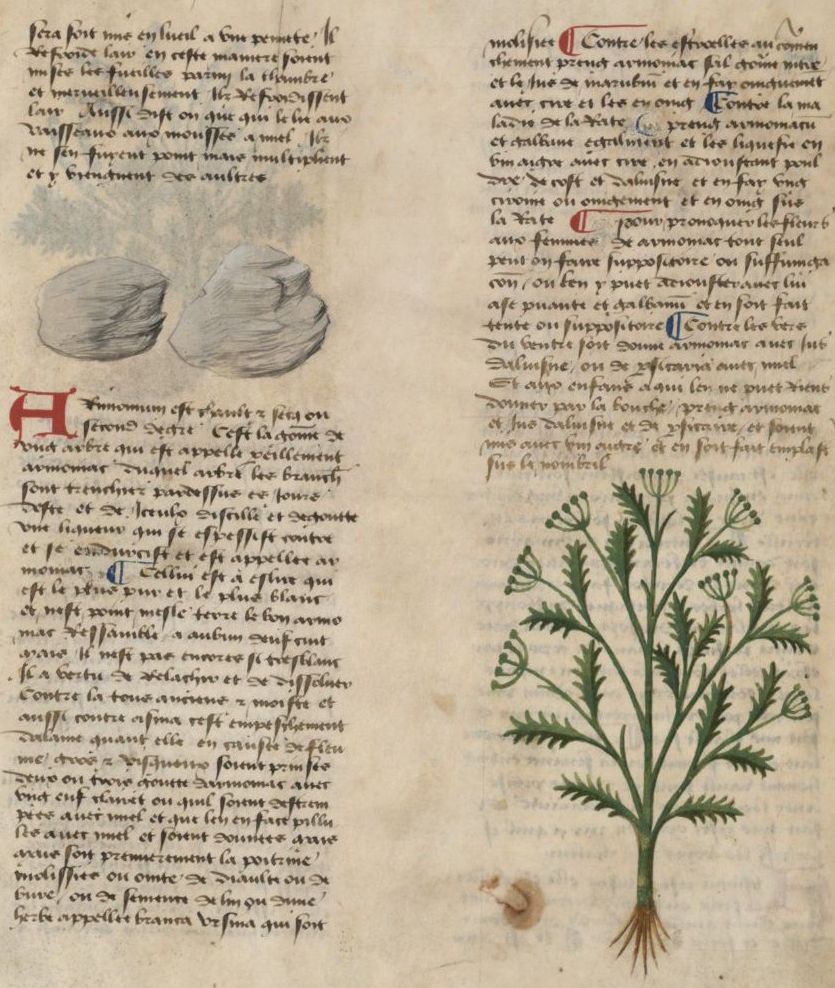 sera soit mis en lueil a vne penette Il
Refroide lair en ceste maniere soient
mises les fueilles parmi la chambre
et merueilleusement Ilz Refroidissent
lair Aussi dist on que qui le lie aux
vaisseaux aux mousses a miel Ilz
ne sen fuyent point mais multiplient
et y viengnent des aultres
Armoniacum est chault & secq ou
second degre Cest la gome de
vng arbre qui est appelle pareillement
armoniac duquel arbre les branch
sont trenchies pardessus es Jours
deste et de Icculx distille et degoutte
vne liqueur qui se espessist contre
et se endurcist et est appellee ar
moniac Cellui est a eslire qui
est le plus pur et le plus blanc
et nest point mesle terre le bon armo
niac Ressamble a aubun deuf cuit
mais Il nest pas encores si tresblanc
Il a vertu de Relachier et de dissoluer
Contre la tous ancienne & moiste et
aussi contre asma cest empeschement
dalaine quant elle en causee de fleu
me gros & visqueux soient prinses
deux ou trois goutte darmoniac auec
vng euf clairet ou quil soient destrem
pees auec miel et que len en face pillu
les auec miel et soient donnees mais
mais soit premierement la poitrine
molifiee ou ointe de diaulte ou de
bure ou de semence de lin ou dune
herbe appellee branca vrsina qui soit
molifiee Contre les escroelles au comen
chement preng armoniac sal gome nitre
et le Jus de marubin et en fay oinguement
auec cire et les en oing Contre la ma
ladie de la Rate preng armoniacu
et galbane egalment et les liquefie en
vin aigre auec cire en adioustant poul
dre de cost et daluisne et en fay vng
ciroine ou oingement et en oing sus
la Rate pour prouoquer les fleurs
aux femmes de armoniac tout seul
peut on faire suppositoire ou suffumiga
con ou ben y puet adiouster auec lui
ase puante et galbanu et en soit fait
tente ou suppositoire Contre les vers
du ventre soit donne armoniac auec Jus
daluisne ou de psicaria auec miel
Et aux enfans a qui len ne puet riens
donner par la bouche preng armoniac
et Jus daluisne et de psicaire et soient
mis auec vin aigre et en soit fait emplast
sus le nombril